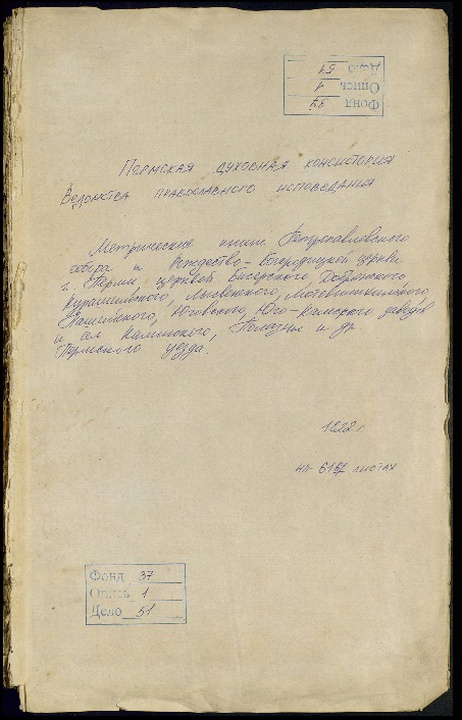 Фонд 37
Опись 1
Дело 51
Пермская духовная консистория
Ведомства православного исповедания
Метрические книги Петропавловского
собора и Рождество-Богородицкой церкви
г. Перми, церквей Бисерского, Добрянского
Курашимского, Лысвенского, Мотовилихинского,
Пашийского, Юговского, Юго-Камского заводов
и сел Калинского, Полазны и др.
Пермского уезда.
г.
на листах
Фонд 37
Опись 1
Дело 51